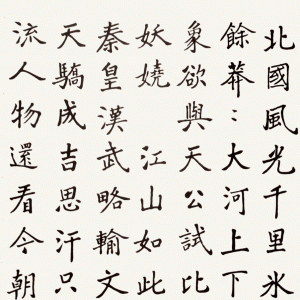 北國風光千里氷
餘莽〻大河上下
象欲與天公試比
妖嬈 江山如此
秦皇漢武略輸文
天驕成吉思汗只
流人物還看今朝